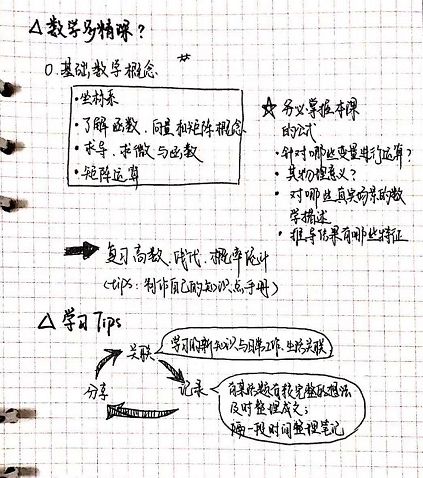 △ 数学多精深？
0. 基础数学概念
• 坐标系
• 了解函数、向量和矩阵概念
• 求导、求微与函数
• 矩阵运算
★ 务必掌握本课
的公式
• 针对哪些变量进行运算？
• 其物理意义？
• 对哪些真实场景的数
学描述
• 推导结果有哪些特征
➡ 复习高数、线代、概率统计
(tips：制作自己的知识点手册)
△ 学习Tips
关联
学习的新知识与日常工作、生活关联
分享
记录
有某话题有较完整的想法
及时整理成文；
隔一段时间整理笔记